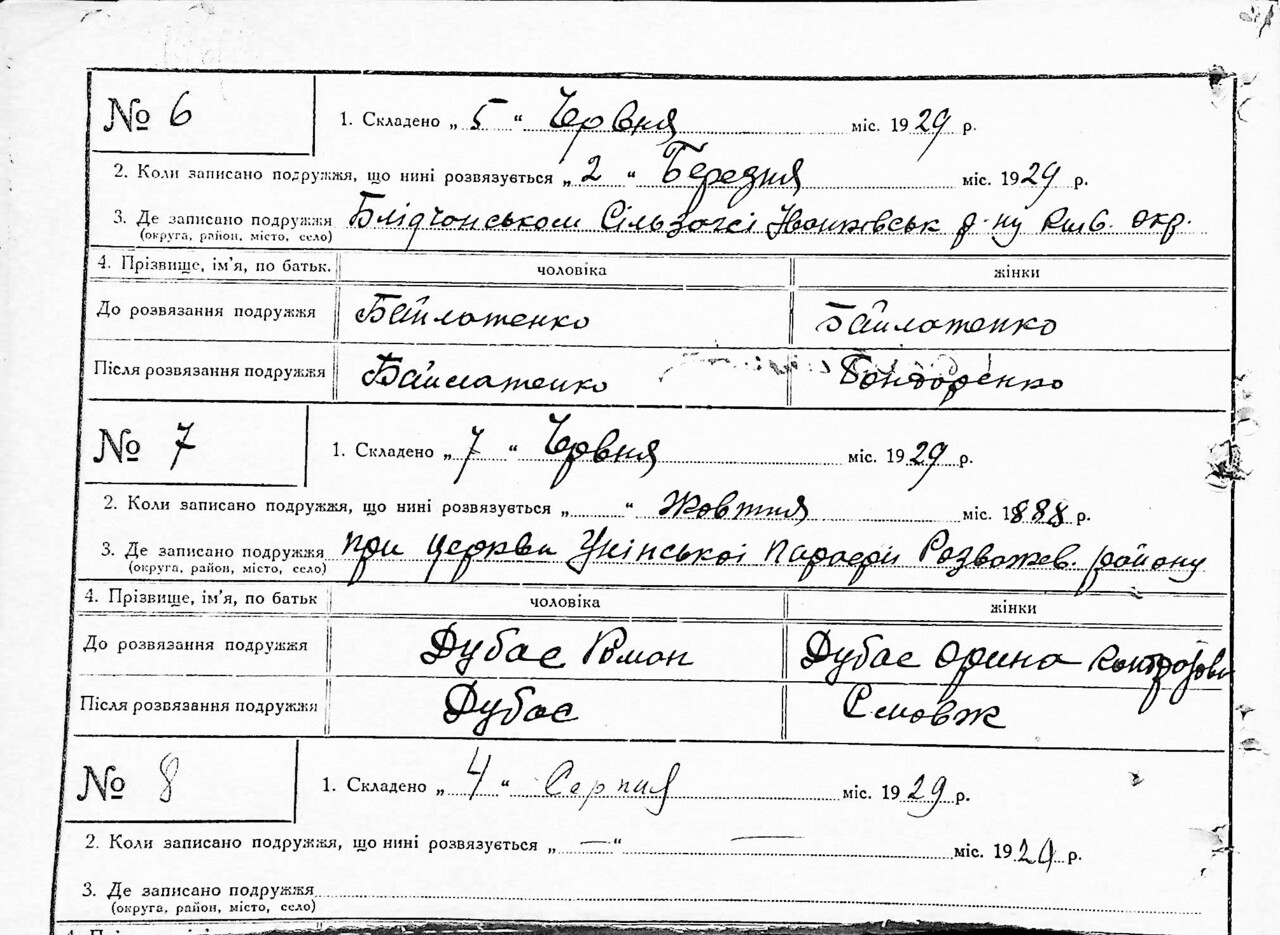 № 6
1. Складено „ 5 “ Червня міс. 1929 р.
2. Коли записано подружжя, що нині розвязується „ 2 “ Березня міс. 1929 р.
3. Де записано подружжя Блідчонськом Сільзагсі Іванковськ р-ну Київ. окр.
(округа, район, місто, село)
4. Прізвище, ім’я, по батьк. чоловіка жінки
До розвязання подружжя Байлатенко Байлатенко
Після розвязання подружжя Байлатенко Бондоренко
№ 7
1. Складено „ 7 “ Червня міс. 1929 р.
2. Коли записано подружжя, що нині розвязується „ “ Жовтня міс. 1888 р.
3. Де записано подружжя при церкви Унінської Розважев. району
(округа, район, місто, село)
4. Прізвище, ім’я, по батьк чоловіка жінки
До розвязання подружжя Дубас Роман Дубас Орина
Після розвязання подружжя Дубас
№ 8
1. Складено „ 4 “ Серпня міс. 1929 р.
2. Коли записано подружжя, що нині розвязується „ — “ — міс. 1929 р.
3. Де записано подружжя
(округа, район, місто, село)